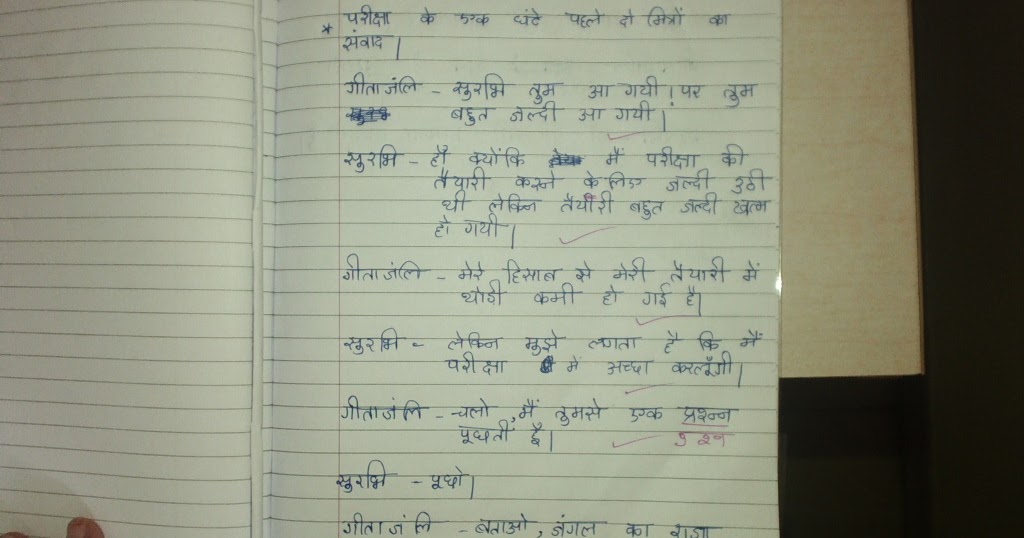 * परीक्षा के एक घंटे पहले दो मित्रों का
संवाद।
गीताजंलि - सुरभि तुम आ गयी। पर तुम
बहुत जल्दी आ गयी।
सुरभि - हाँ क्योंकि मैं परीक्षा की
तैयारी करने के लिए जल्दी उठी
थी लेकिन तैयारी बहुत जल्दी खत्म
हो गयी।
गीताजंलि - मेरे हिसाब से मेरी तैयारी में
थोरी कमी हो गई है।
सुरभि - लेकिन मुझे लगता है कि मैं
परीक्षा में अच्छा करलूँगी।
गीताजंलि - चलो, मैं तुमसे एक प्रशन्न
पूछती हूँ।
सुरभि - पूछो।
गीताजंलि - बताओ, जंगल का राजा